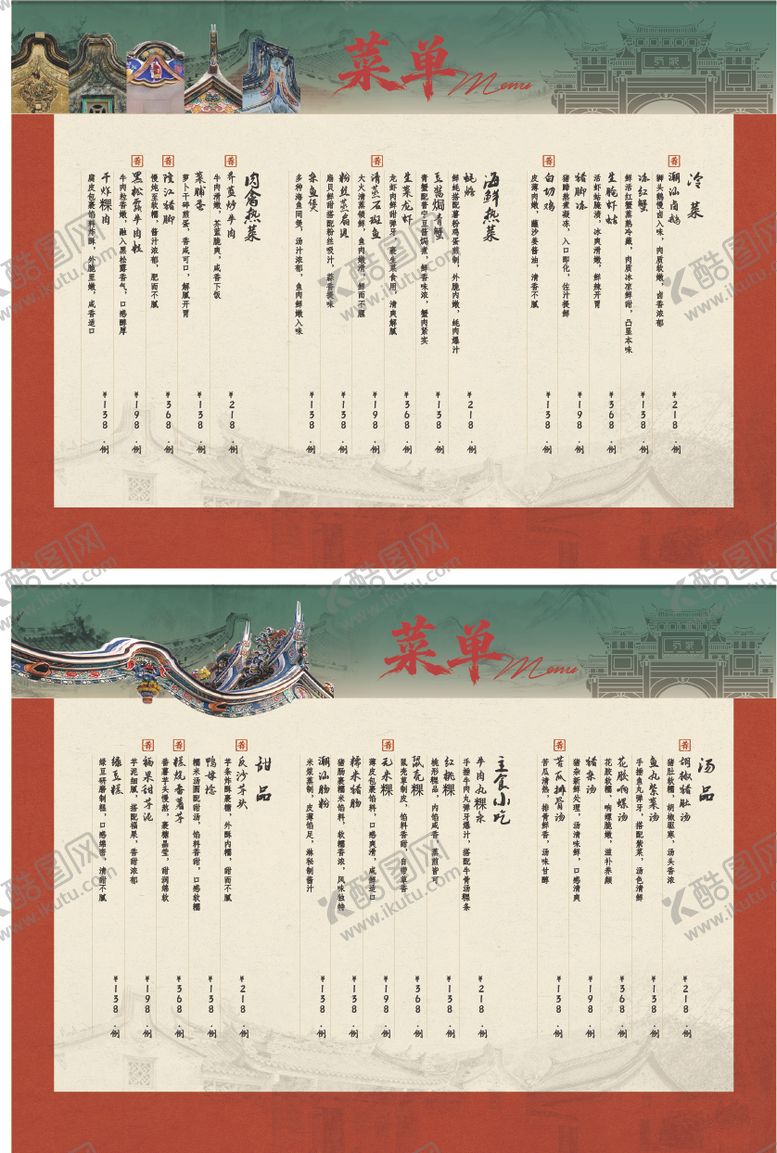 菜单
Menu
冷菜
潮汕卤鹅
狮头鹅慢卤入味，肉质软嫩，卤香浓郁
¥218.例
冻红蟹
鲜活红蟹蒸熟冷藏，肉质冰凉鲜甜，凸显本味
¥138.例
生腌虾姑
活虾姑腌渍，冰爽滑嫩，鲜辣开胃
¥368.例
猪脚冻
猪蹄熬煮凝冻，入口即化，佐汁提鲜
¥198.例
香
白切鸡
皮薄肉嫩，蘸沙姜酱油，清香不腻
¥138.例
海鲜热菜
蚝烙
鲜蚝搭配薯粉鸡蛋煎制，外脆内嫩，蚝肉爆汁
¥218.例
豆酱焗青蟹
青蟹配普宁豆酱焗煮，鲜香味浓，蟹肉紧实
¥138.例
生菜龙虾
龙虾肉鲜甜弹牙，裹生菜食用，清爽解腻
¥368.例
清蒸石斑鱼
大火清蒸锁鲜，鱼肉嫩滑，鲜而不腥
¥198.例
粉丝蒸扇贝
扇贝鲜甜搭配粉丝吸汁，蒜香提味
¥138.例
杂鱼煲
多种海鱼同煲，汤汁浓郁，鱼肉鲜嫩入味
¥138.例
肉禽热菜
芥蓝炒牛肉
牛肉滑嫩，芥蓝脆爽，咸香下饭
¥218.例
菜脯蛋
萝卜干碎煎蛋，香咸可口，解腻开胃
¥138.例
隆江猪脚
慢炖至软糯，酱汁浓郁，肥而不腻
¥368.例
黑松露牛肉粒
牛肉粒香嫩，融入黑松露香气，口感醇厚
¥198.例
干炸粿肉
腐皮包裹馅料炸酥，外脆里嫩，咸香适口
¥138.例
菜单
Menu
汤品
胡椒猪肚汤
猪肚软糯，胡椒驱寒，汤头香浓
¥218.例
鱼丸紫菜汤
手捶鱼丸弹牙，搭配紫菜，汤色清鲜
¥138.例
花胶响螺汤
花胶软糯，响螺脆嫩，滋补养颜
¥368.例
猪杂汤
猪杂新鲜处理，汤清味鲜，口感清爽
¥198.例
苦瓜排骨汤
苦瓜清热，排骨鲜香，汤味甘醇
¥138.例
主食小吃
牛肉丸粿条
手捶牛肉丸弹牙爆汁，搭配牛骨汤粿条
¥218.例
红桃粿
桃形粿品，内馅咸香，蒸煎皆可
¥138.例
鼠壳粿
鼠壳草制皮，馅料香甜，自带草香
¥368.例
无米粿
薄皮包裹馅料，口感爽滑，咸鲜适口
¥198.例
糯米猪肠
猪肠裹糯米馅料，软糯香浓，风味独特
¥138.例
潮汕肠粉
米浆蒸制，皮薄馅足，淋轻制酱汁
¥138.例
甜品
反沙芋头
芋条炸酥裹糖，外酥内糯，甜而不腻
¥218.例
鸭母捻
糯米汤圆配甜汤，馅料香甜，口感软糯
¥138.例
糕烧番薯芋
番薯芋头慢熬，裹糖晶莹，甜润绵软
¥368.例
福果甜芋泥
芋泥细腻，搭配福果，香甜浓郁
¥198.例
绿豆糕
绿豆研磨制糕，口感绵密，清甜不腻
¥138.例
酷图网
www.ikutu.com